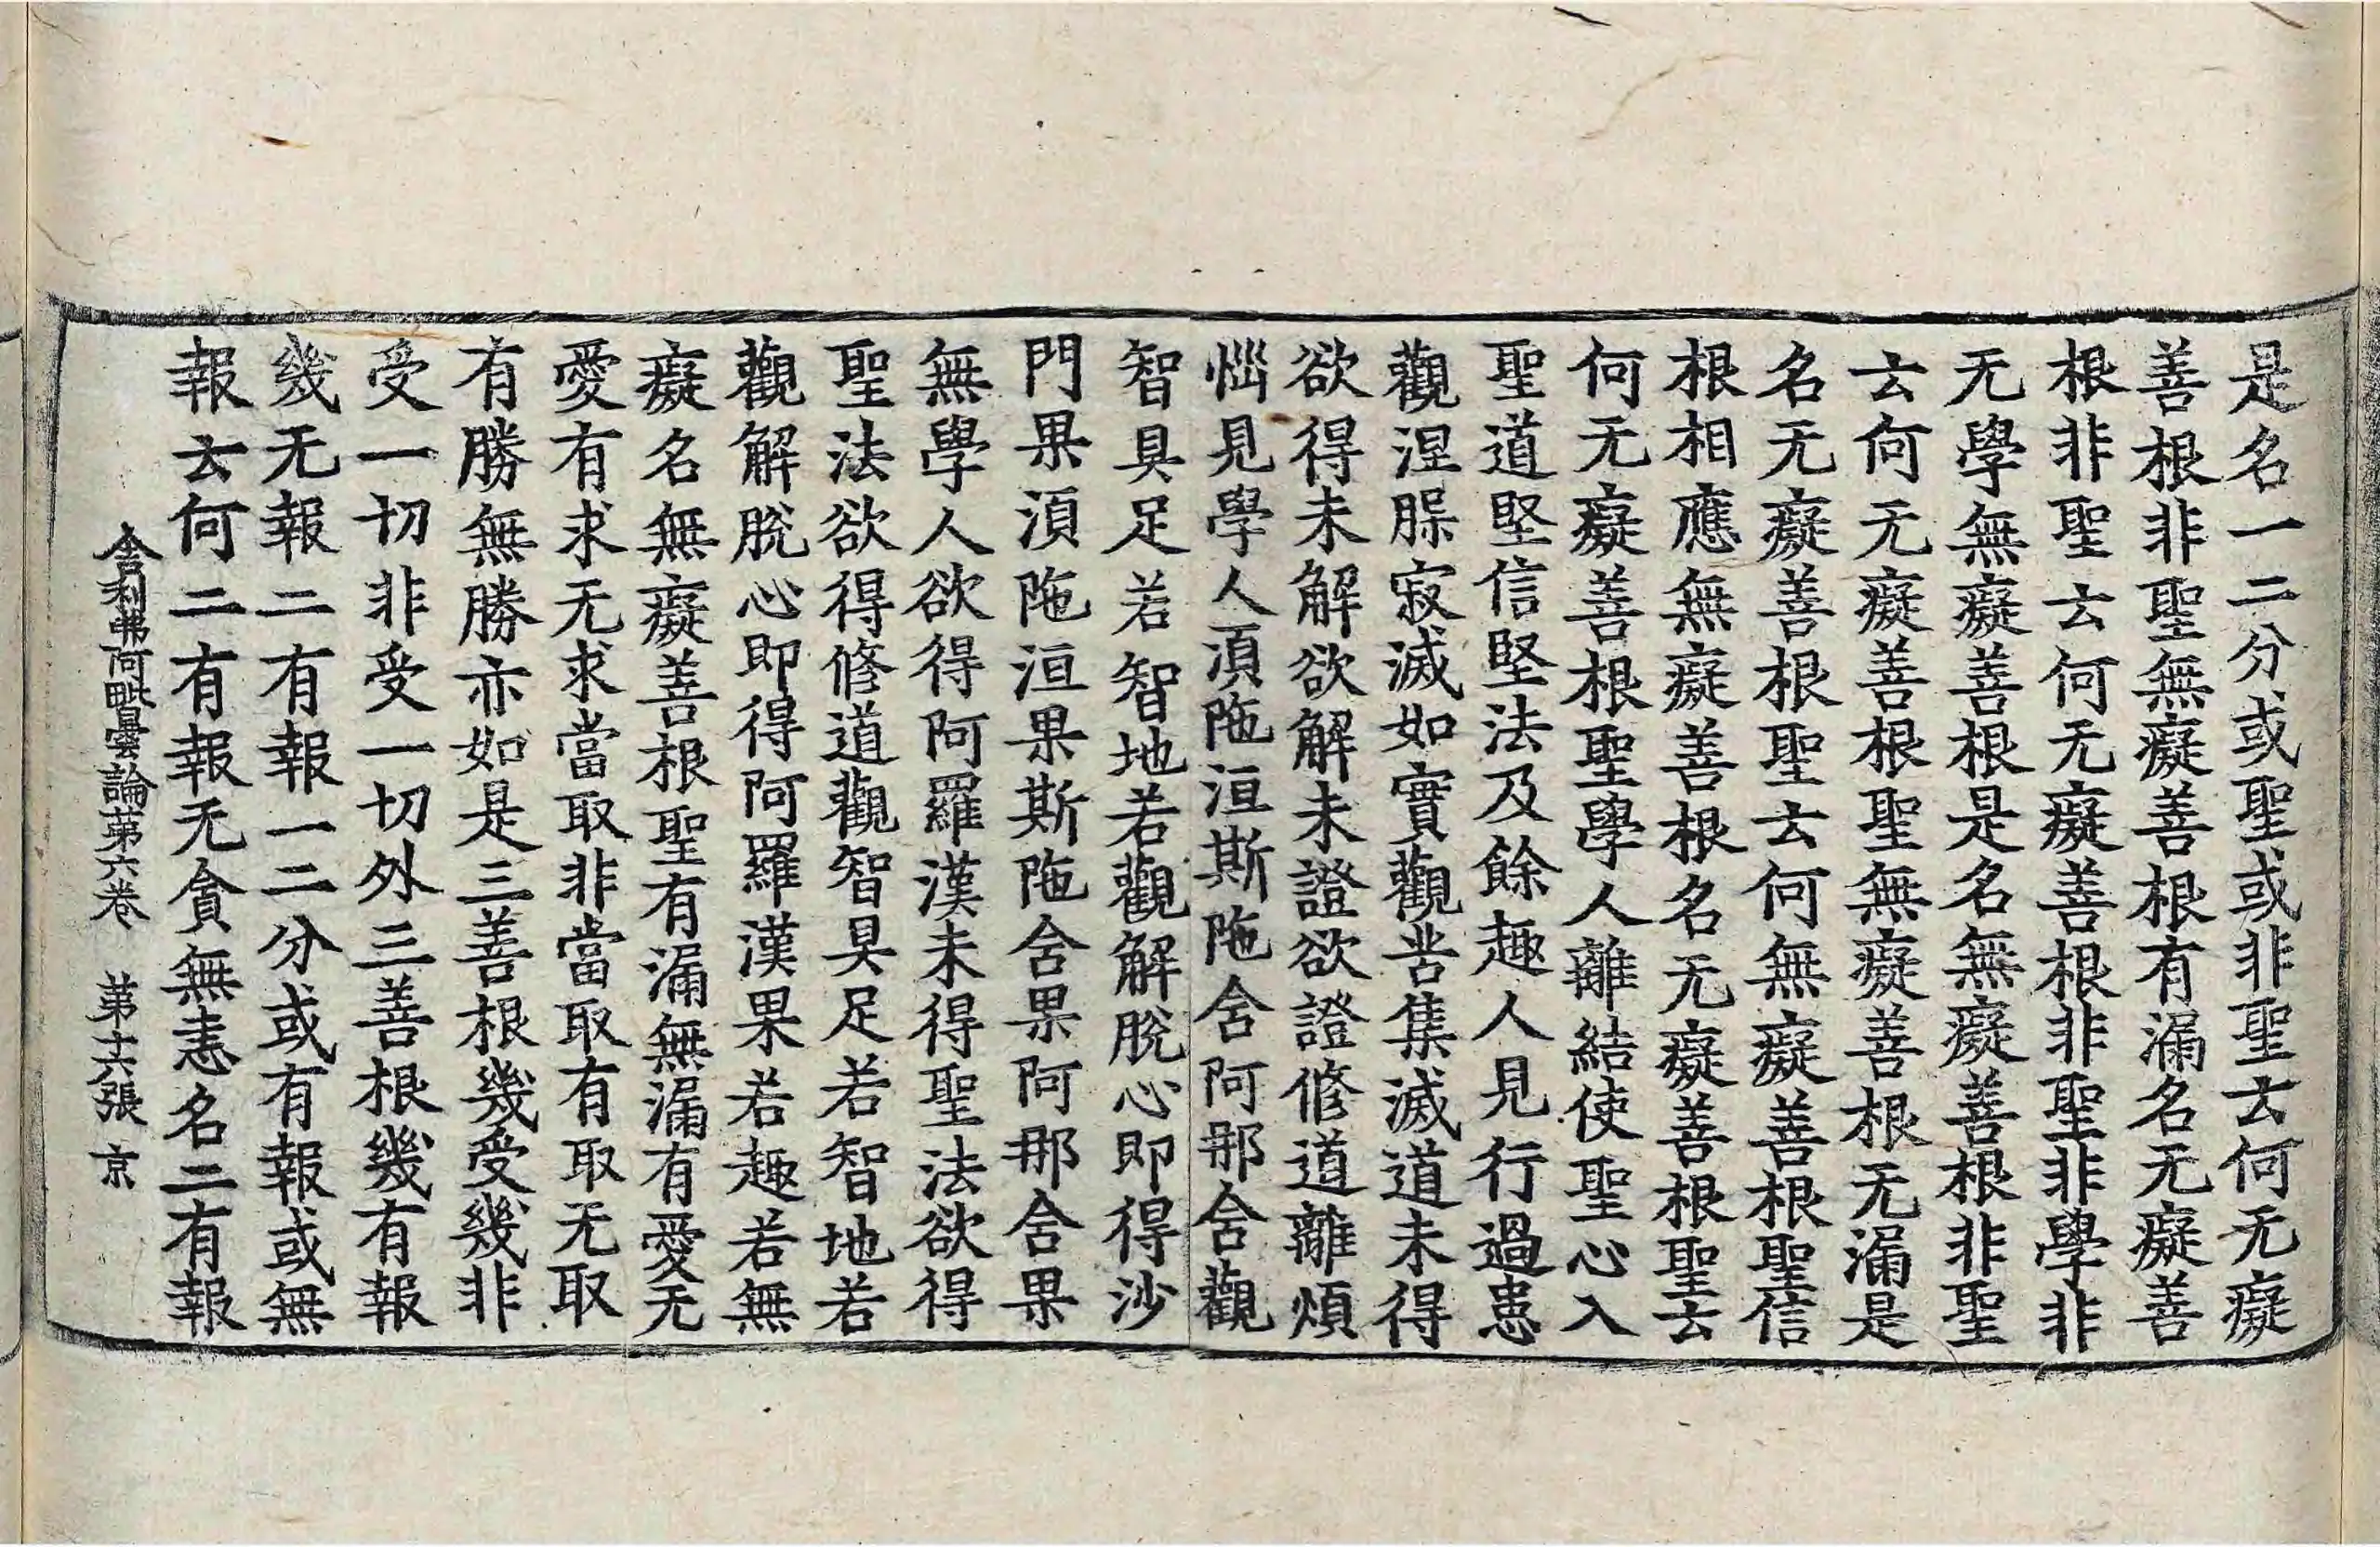 是名一二分或聖或非聖云何无癡
善根非聖無癡善根有漏名无癡善
根非聖云何无癡善根非聖非學非
无學無癡善根是名無癡善根非聖
云何无癡善根聖無癡善根无漏是
名无癡善根聖云何無癡善根聖信
根相應無癡善根名无癡善根聖云
何无癡善根聖學人離結使聖心入
聖道堅信堅法及餘趣人見行過患
觀涅槃寂滅如實觀苦集滅道未得
欲得未解欲解未證欲證修道離煩
惱見學人湏陁洹斯陁含阿那含觀
智具足若智地若觀解脫心即得沙
門果湏陁洹果斯陁含果阿那含果
無學人欲得阿羅漢未得聖法欲得
聖法欲得修道觀智具足若智地若
觀解脫心即得阿羅漢果若趣若無
癡名無癡善根聖有漏無漏有愛无
愛有求无求當取非當取有取无取
有勝無勝亦如是三善根幾受幾非
受一切非受一切外三善根幾有報
幾无報二有報一二分或有報或無
報云何二有報无貪無恚名二有報
舍利弗阿毗曇論第六卷　第十六張　京